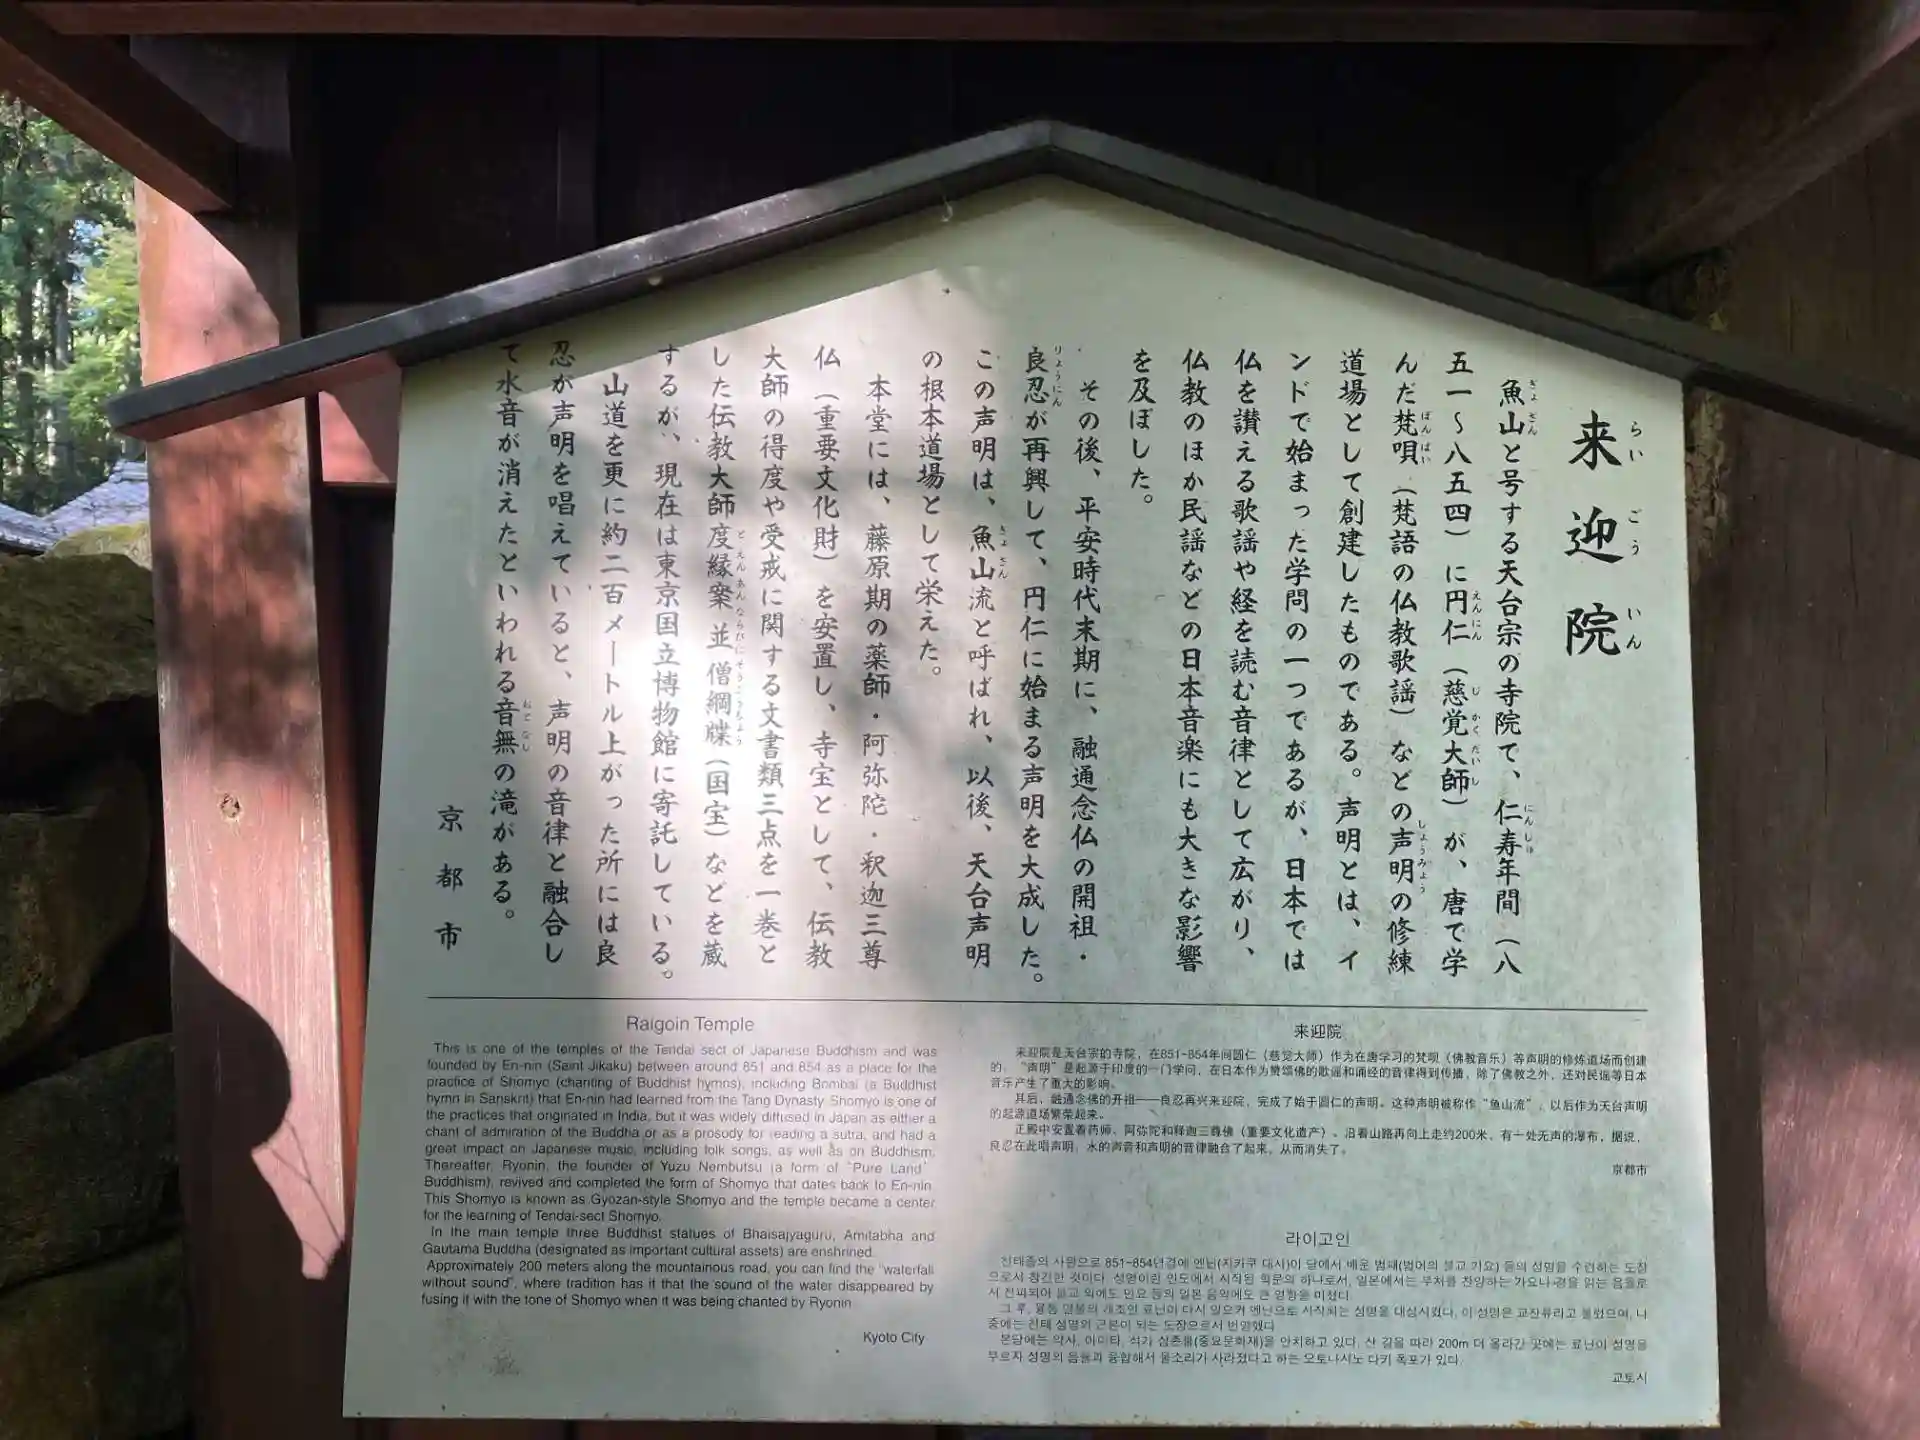 来迎院
魚山と号する天台宗の寺院で、仁寿年間（八
五一〜八五四）に円仁（慈覚大師）が、唐で学
んだ梵唄（梵語の仏教歌謡）などの声明の修練
道場として創建したものである。声明とは、イ
ンドで始まった学問の一つであるが、日本では
仏を讃える歌謡や経を読む音律として広がり、
仏教のほか民謡などの日本音楽にも大きな影響
を及ぼした。
その後、平安時代末期に、融通念仏の開祖・
良忍が再興して、円仁に始まる声明を大成した。
この声明は、魚山流と呼ばれ、以後、天台声明
の根本道場として栄えた。
本堂には、藤原期の薬師・阿弥陀・釈迦三尊
仏（重要文化財）を安置し、寺宝として、伝教
大師の得度や受戒に関する文書類三点を一巻と
した伝教大師度縁案並僧綱牒（国宝）などを蔵
するが、現在は東京国立博物館に寄託している。
山道を更に約二百メートル上がった所には良
忍が声明を唱えていると、声明の音律と融合し
て水音が消えたといわれる音無の滝がある。
京都市
Raigoin Temple
This is one of the temples of the Tendai sect of Japanese Buddhism and was
founded by En-nin (Saint Jikaku) between around 851 and 854 as a place for the
practice of Shomyo (chanting of Buddhist hymns), including Bombai (a Buddhist
hymn in Sanskrit) that En-nin had learned from the Tang Dynasty Shomyo is one of
the practices that originated in India, but it was widely diffused in Japan as either a
chant of admiration of the Buddha or as a prosody for reading a sutra, and had a
great impact on Japanese music, including folk songs, as well as on Buddhism.
Thereafter, Ryonin, the founder of Yuzu Nembutsu (a form of "Pure Land"
Buddhism), revived and completed the form of Shomyo that dates back to En-nin.
This Shomyo is known as Gyozan-style Shomyo and the temple became a center
for the learning of Tendai-sect Shomyo.
In the main temple three Buddhist statues of Bhaisajyaguru, Amitabha and
Gautama Buddha (designated as important cultural assets) are enshrined.
Approximately 200 meters along the mountainous road, you can find the "waterfall
without sound", where tradition has it that the sound of the water disappeared by
fusing it with the tone of Shomyo when it was being chanted by Ryonin
Kyoto City
来迎院
来迎院是天台宗的寺院，在851-854年间圆仁（慈觉大师）作为在唐学习的梵呗（佛教音乐）等声明的修炼道场而创建
的。"声明"是起源于印度的一门学问，在日本作为赞颂佛的歌谣和诵经的音律得到传播，除了佛教之外，还对民谣等日本
音乐产生了重大的影响。
其后，融通念佛的开祖——良忍再兴来迎院，完成了始于圆仁的声明。这种声明被称作"鱼山流"，以后作为天台声明
的起源道场繁荣起来。
正殿中安置着药师、阿弥陀和释迦三尊佛（重要文化遗产）。沿着山路再向上走约200米，有一处无声的瀑布，据说，
良忍在此唱声明，水的声音和声明的音律融合了起来，从而消失了。
京都市
라이고인
천태종의 사원으로 851-854년경에 엔닌(지카쿠 대사)이 당에서 배운 범패(범어의 불교 가요) 등의 성명을 수련하는 도장
으로서 창건한 것이다. 성명이란 인도에서 시작된 학문의 하나로서, 일본에서는 부처를 찬양하는 가요나 경을 읽는 음률로
서 전파되어 불교 외에도 민요 등의 일본 음악에도 큰 영향을 미쳤다.
그 후, 융통 염불의 개조인 료닌이 다시 일으켜 엔닌으로 시작되는 성명을 대성시켰다. 이 성명은 교잔류라고 불렸으며, 나
중에는 천태 성명의 근본이 되는 도장으로서 번영했다
본당에는 약사, 아미타, 석가 삼존불(중요문화재)을 안치하고 있다. 산 길을 따라 200m 더 올라간 곳에는 료닌이 성명을
부르자 성명의 음률과 융합해서 물소리가 사라졌다고 하는 오토나시노 타키 폭포가 있다.
교토시